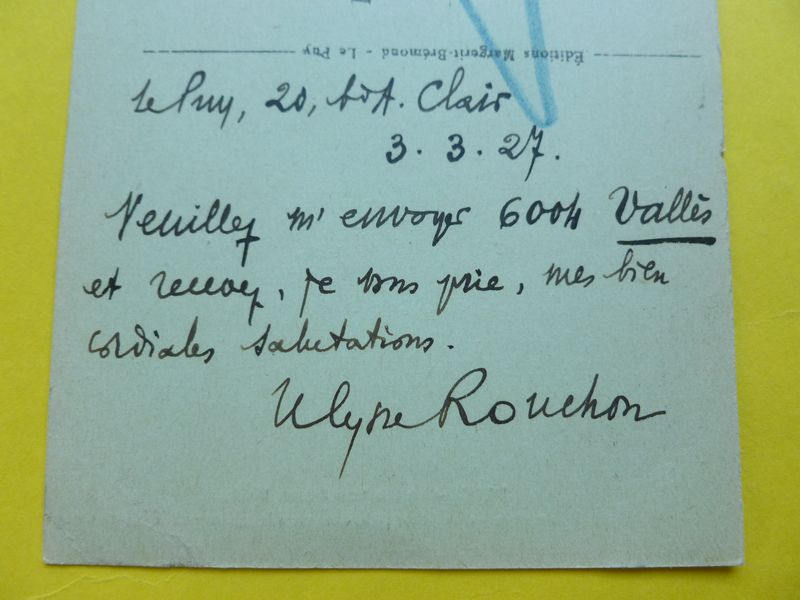 Éditions Margerit-Brémond - Le Puy
Le Puy, 20, bd A. Clair
3. 3. 27.
Veuillez m'envoyer 6004 Vallès
et recevez, je vous prie, mes bien
cordiales salutations.
Ulysse Rouchon